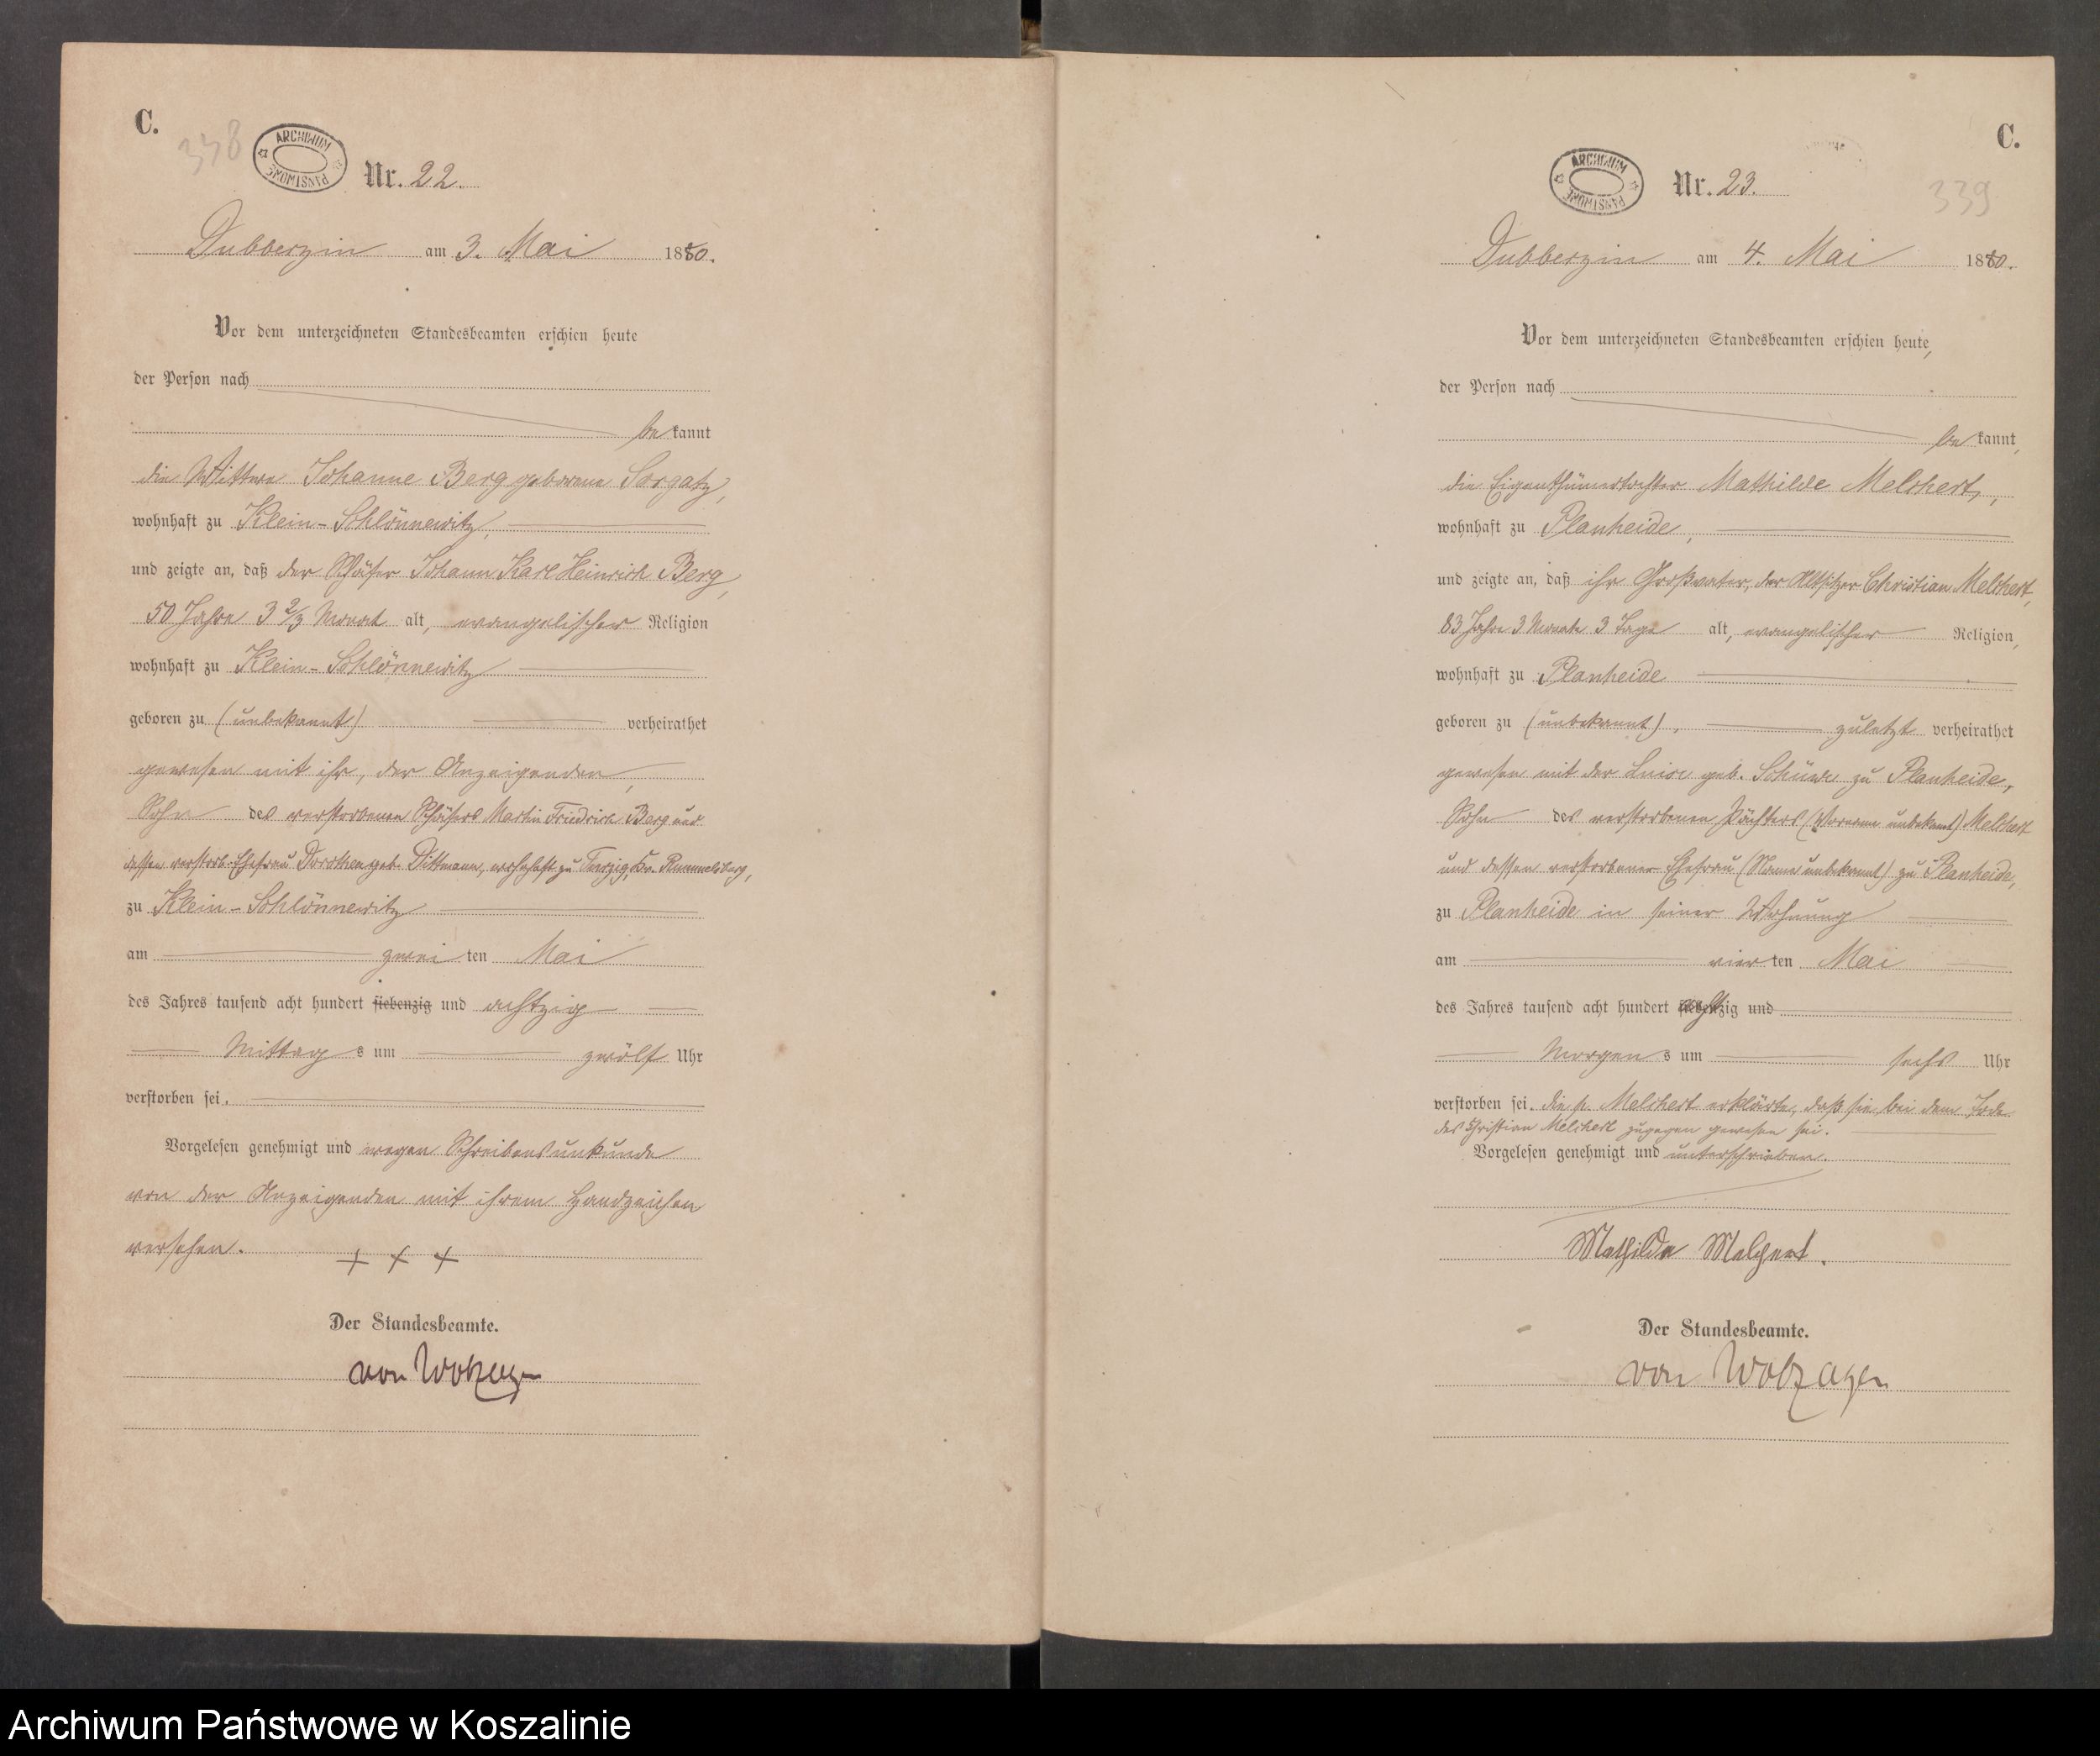 C.
338
ARCHIWUM PAŃSTWOWE
Nr. 22.
Dubberzin am 3. Mai 1880.
Vor dem unterzeichneten Standesbeamten erschien heute
der Person nach
bekannt
die Wittwe Johanne Berg geborene Sorgatz,
wohnhaft zu Klein-Schlönnewitz,
und zeigte an, daß der Schäfer Johann Karl Heinrich Berg,
50 Jahre 3 2/3 Monat alt, evangelischer Religion
wohnhaft zu Klein-Schlönnewitz
geboren zu (unbekannt) verheirathet
gewesen mit ihr, der Anzeigenden,
Sohn des verstorbenen Schäfers Martin Friedrich Berg und
dessen verstorb. Ehefrau Dorothea geb. Dittmann, wohnhaft zu Turzig, Kr. Rummelsburg,
zu Klein-Schlönnewitz
am zwei ten Mai
des Jahres tausend acht hundert siebenzig und achtzig
Mittag s um zwölf Uhr
verstorben sei.
Vorgelesen genehmigt und wegen Schreibensunkunde
von der Anzeigenden mit ihrem Handzeichen
versehen. + + +
Der Standesbeamte.
von Wobeser
C.
339
ARCHIWUM PAŃSTWOWE
Nr. 23.
Dubberzin am 4. Mai 1880.
Vor dem unterzeichneten Standesbeamten erschien heute,
der Person nach
bekannt,
die Eigenthümertochter Mathilde Melchert,
wohnhaft zu Planheide,
und zeigte an, daß ihr Großvater, der Altsitzer Christian Melchert,
83 Jahre 3 Monate 3 Tage alt, evangelischer Religion,
wohnhaft zu Planheide
geboren zu (unbekannt), zuletzt verheirathet
gewesen mit der Luise geb. Schüwe zu Planheide,
Sohn des verstorbenen Pächters (Vorname unbekannt) Melchert
und dessen verstorbener Ehefrau (Name unbekannt) zu Planheide,
zu Planheide in seiner Wohnung
am vier ten Mai
des Jahres tausend acht hundert achtzig und
Morgen s um sechs Uhr
verstorben sei. die p. Melchert erklärte, daß sie bei dem Tode
des Christian Melchert zugegen gewesen sei.
Vorgelesen genehmigt und unterschrieben.
Mathilde Melchert.
Der Standesbeamte.
von
Archiwum Państwowe w Koszalinie